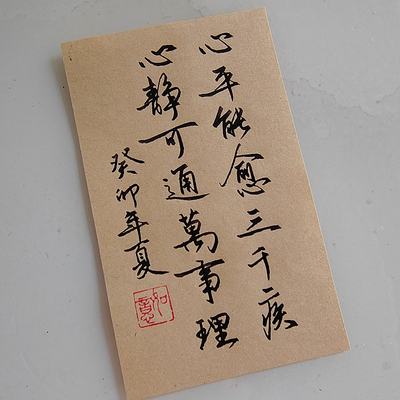 心平能愈三千疾
心静可通萬事理
癸卯年夏
如意